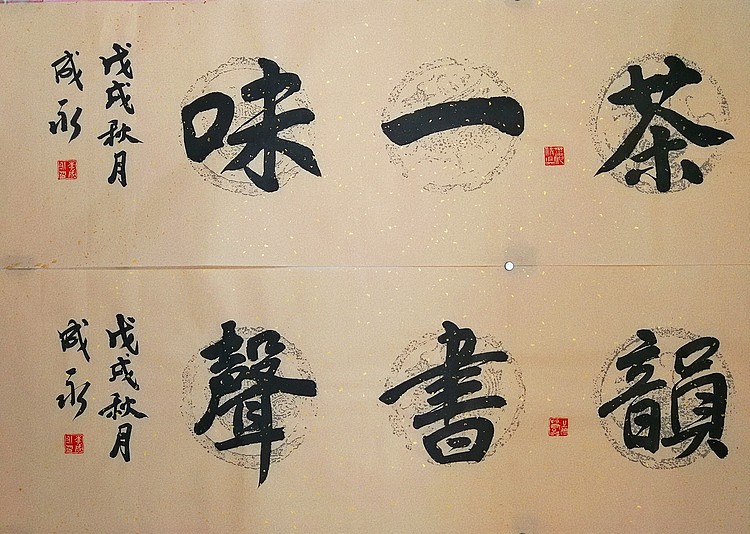 茶一味
戊戌秋月
成永
韻書聲
戊戌秋月
成永